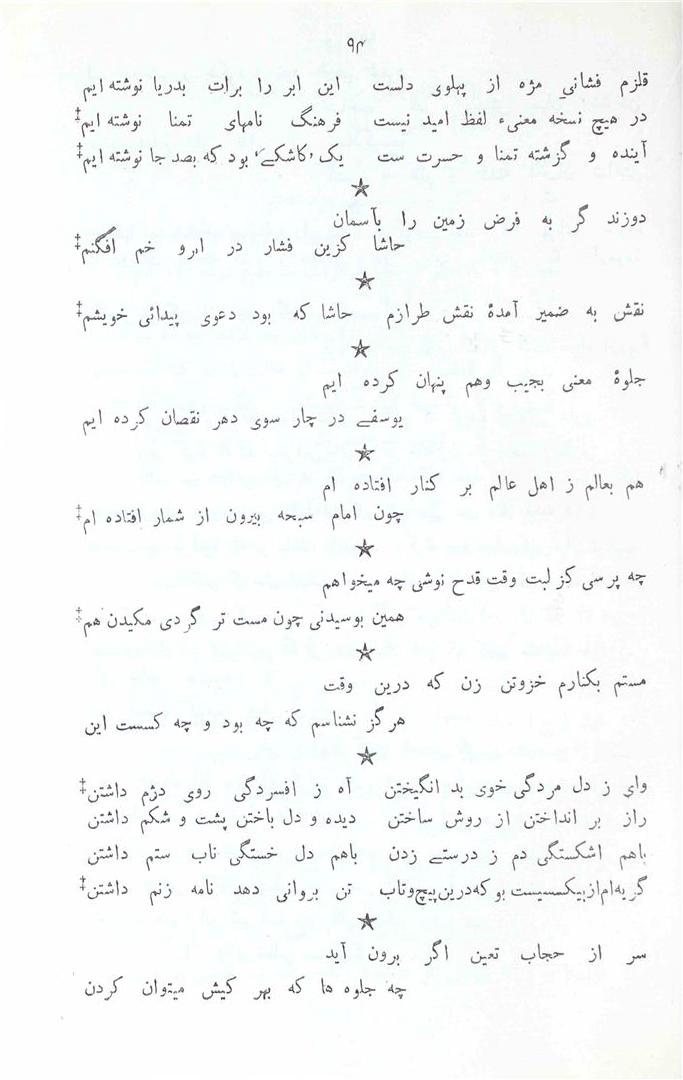 ۹۴
قلزم فشانی مژه از پہلوی دلست این ابر را برات بدریا نوشته ایم
در هیچ نسخه معنیء لفظ امید نیست فرهنگ نامهای تمنا نوشته ایم‡
آینده و گزشته تمنا و حسرت ست یک ’کاشکے‘ بود که بصد جا نوشته ایم‡
دوزند گر به فرض زمین را بآسمان
حاشا کزین فشار در ابرو خم افگنم‡
نقش به ضمیر آمدۀ نقش طرازم حاشا که بود دعوی پیدائی خویشم‡
جلوۀ معنی بجیب وهم پنہان کرده ایم
یوسفے در چار سوی دهر نقصان کرده ایم
هم بعالم ز اهل عالم بر کنار افتاده ام
چون امام سبحه بیرون از شمار افتاده ام‡
چه پرسی کز لبت وقت قدح نوشی چه میخواهم
همین بوسیدنی چون مست تر گردی مکیدن هم‡
مستم بکنارم خزوتن زن که درین وقت
هرگز نشناسم که چه بود و چه کسست این
وای ز دل مردگی خوی بد انگیختن آه ز افسردگی روی دژم داشتن‡
راز بر انداختن از روش ساختن دیده و دل باختن پشت و شکم داشتن
باهم اشکستگی دم ز درستے زدن باهم دل خستگی ناب ستم داشتن
گریه‌ام از بیکسیست بو که درین پیچ و تاب تن بروانی دهد نامه زنم داشتن‡
سر از حجاب تعین اگر برون آید
چه جلوه ها که بہر کیش میتوان کردن